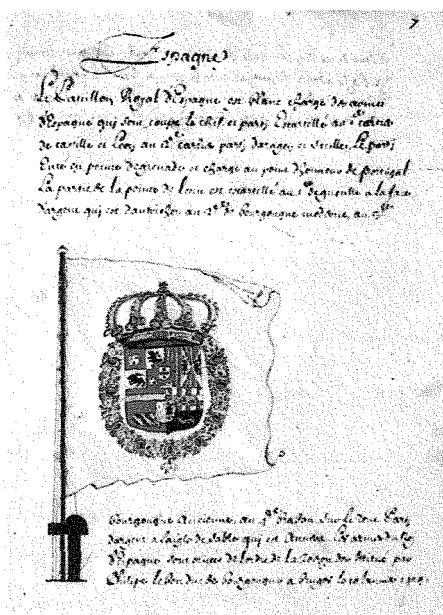 7
Espagne
Le Pavillon Royal d'Espagne est blanc chargé des armes
d'Espagne qui sont coupé le chef est parti Ecartellé au 1er cartier
de castille et Leon au 2e cartier parti daragon et Sicilles Le parti
Enté en pointe de grenade et chargé au point d'honneur de portugal
La partie de la pointe de l'ecu est ecartellé au 1er de gueulle a la face
d'argent qui est d'autriche au 2e de Bourgougne moderne, au 3e
Bourgougne Ancienne, au 4e Brabon Sur le tout Parti
d'argent a l'aigle de Sable qui est Anvers Les armes du Roy
d'Espagne sont ornées de lordre de la Toison dor Institué par
Philipe le bon duc de bourgougne a Bruges le 10 Janvier